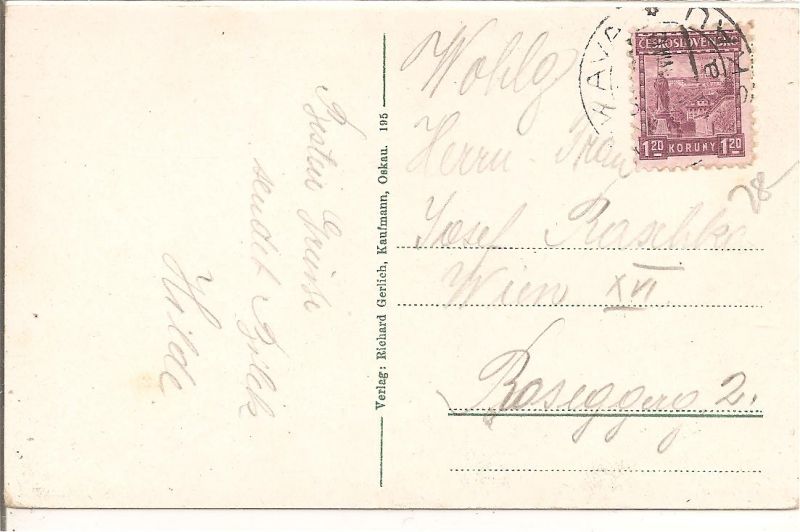 Besten Grüße
sendet
Hilde
Verlag: Richard Gerlich, Kaufmann, Oskau. 195
ČESKOSLOVENSKO
1.20 KORUNY 1.20
Wohlg
Herrn Frau
Josef Raschke
Wien XVI
Rosegger g 2.
28